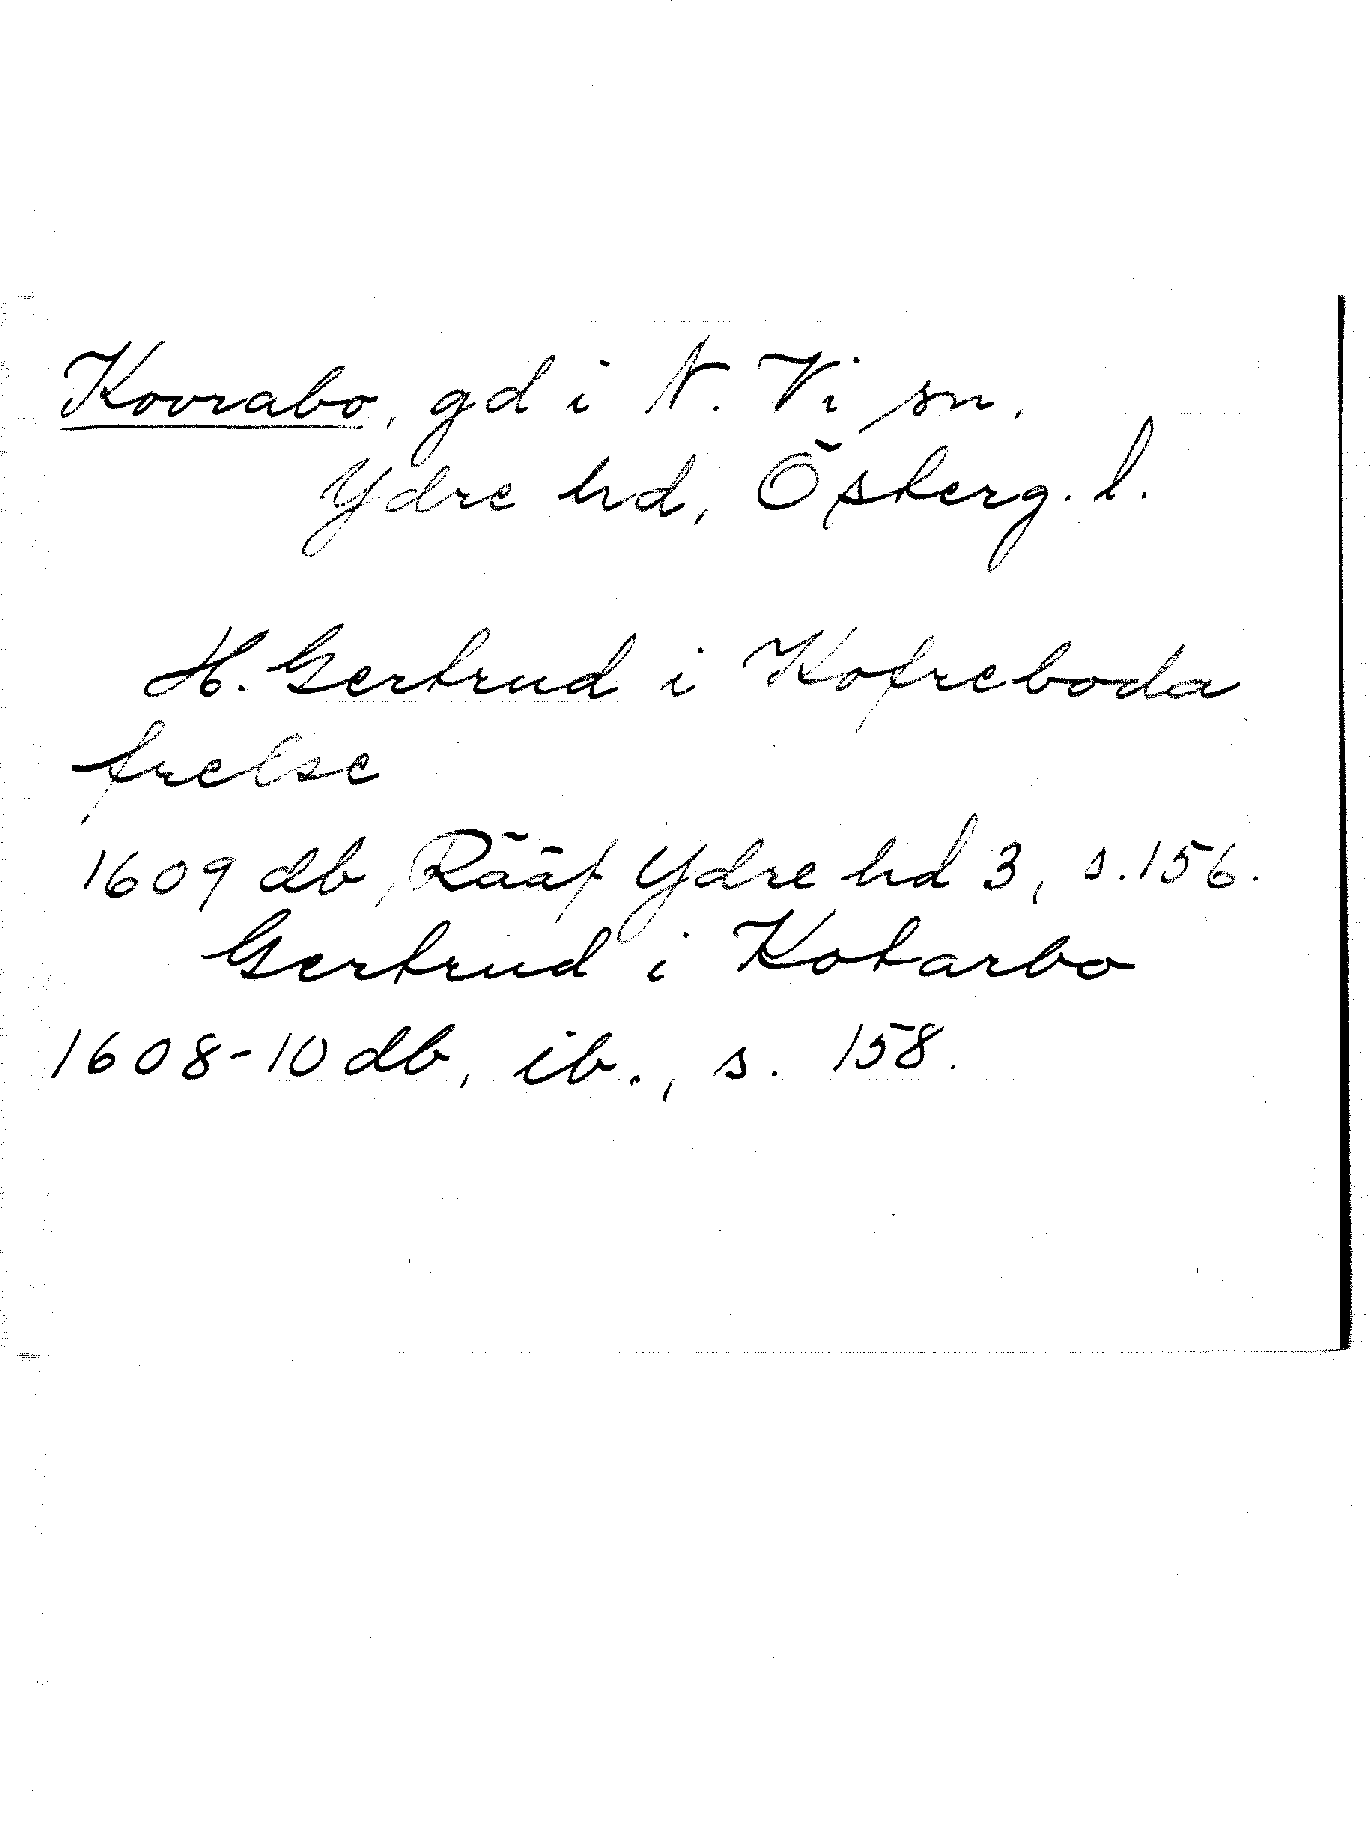 Kovrabo, gd i N. Vi sn.
Ydre hd, Österg. l.
H. Gertrud i Kofreboda
frelse
1609 db, Rääf Ydre hd 3, s. 156.
Gertrud i Kotarbo
1608-10 db, ib., s. 158.